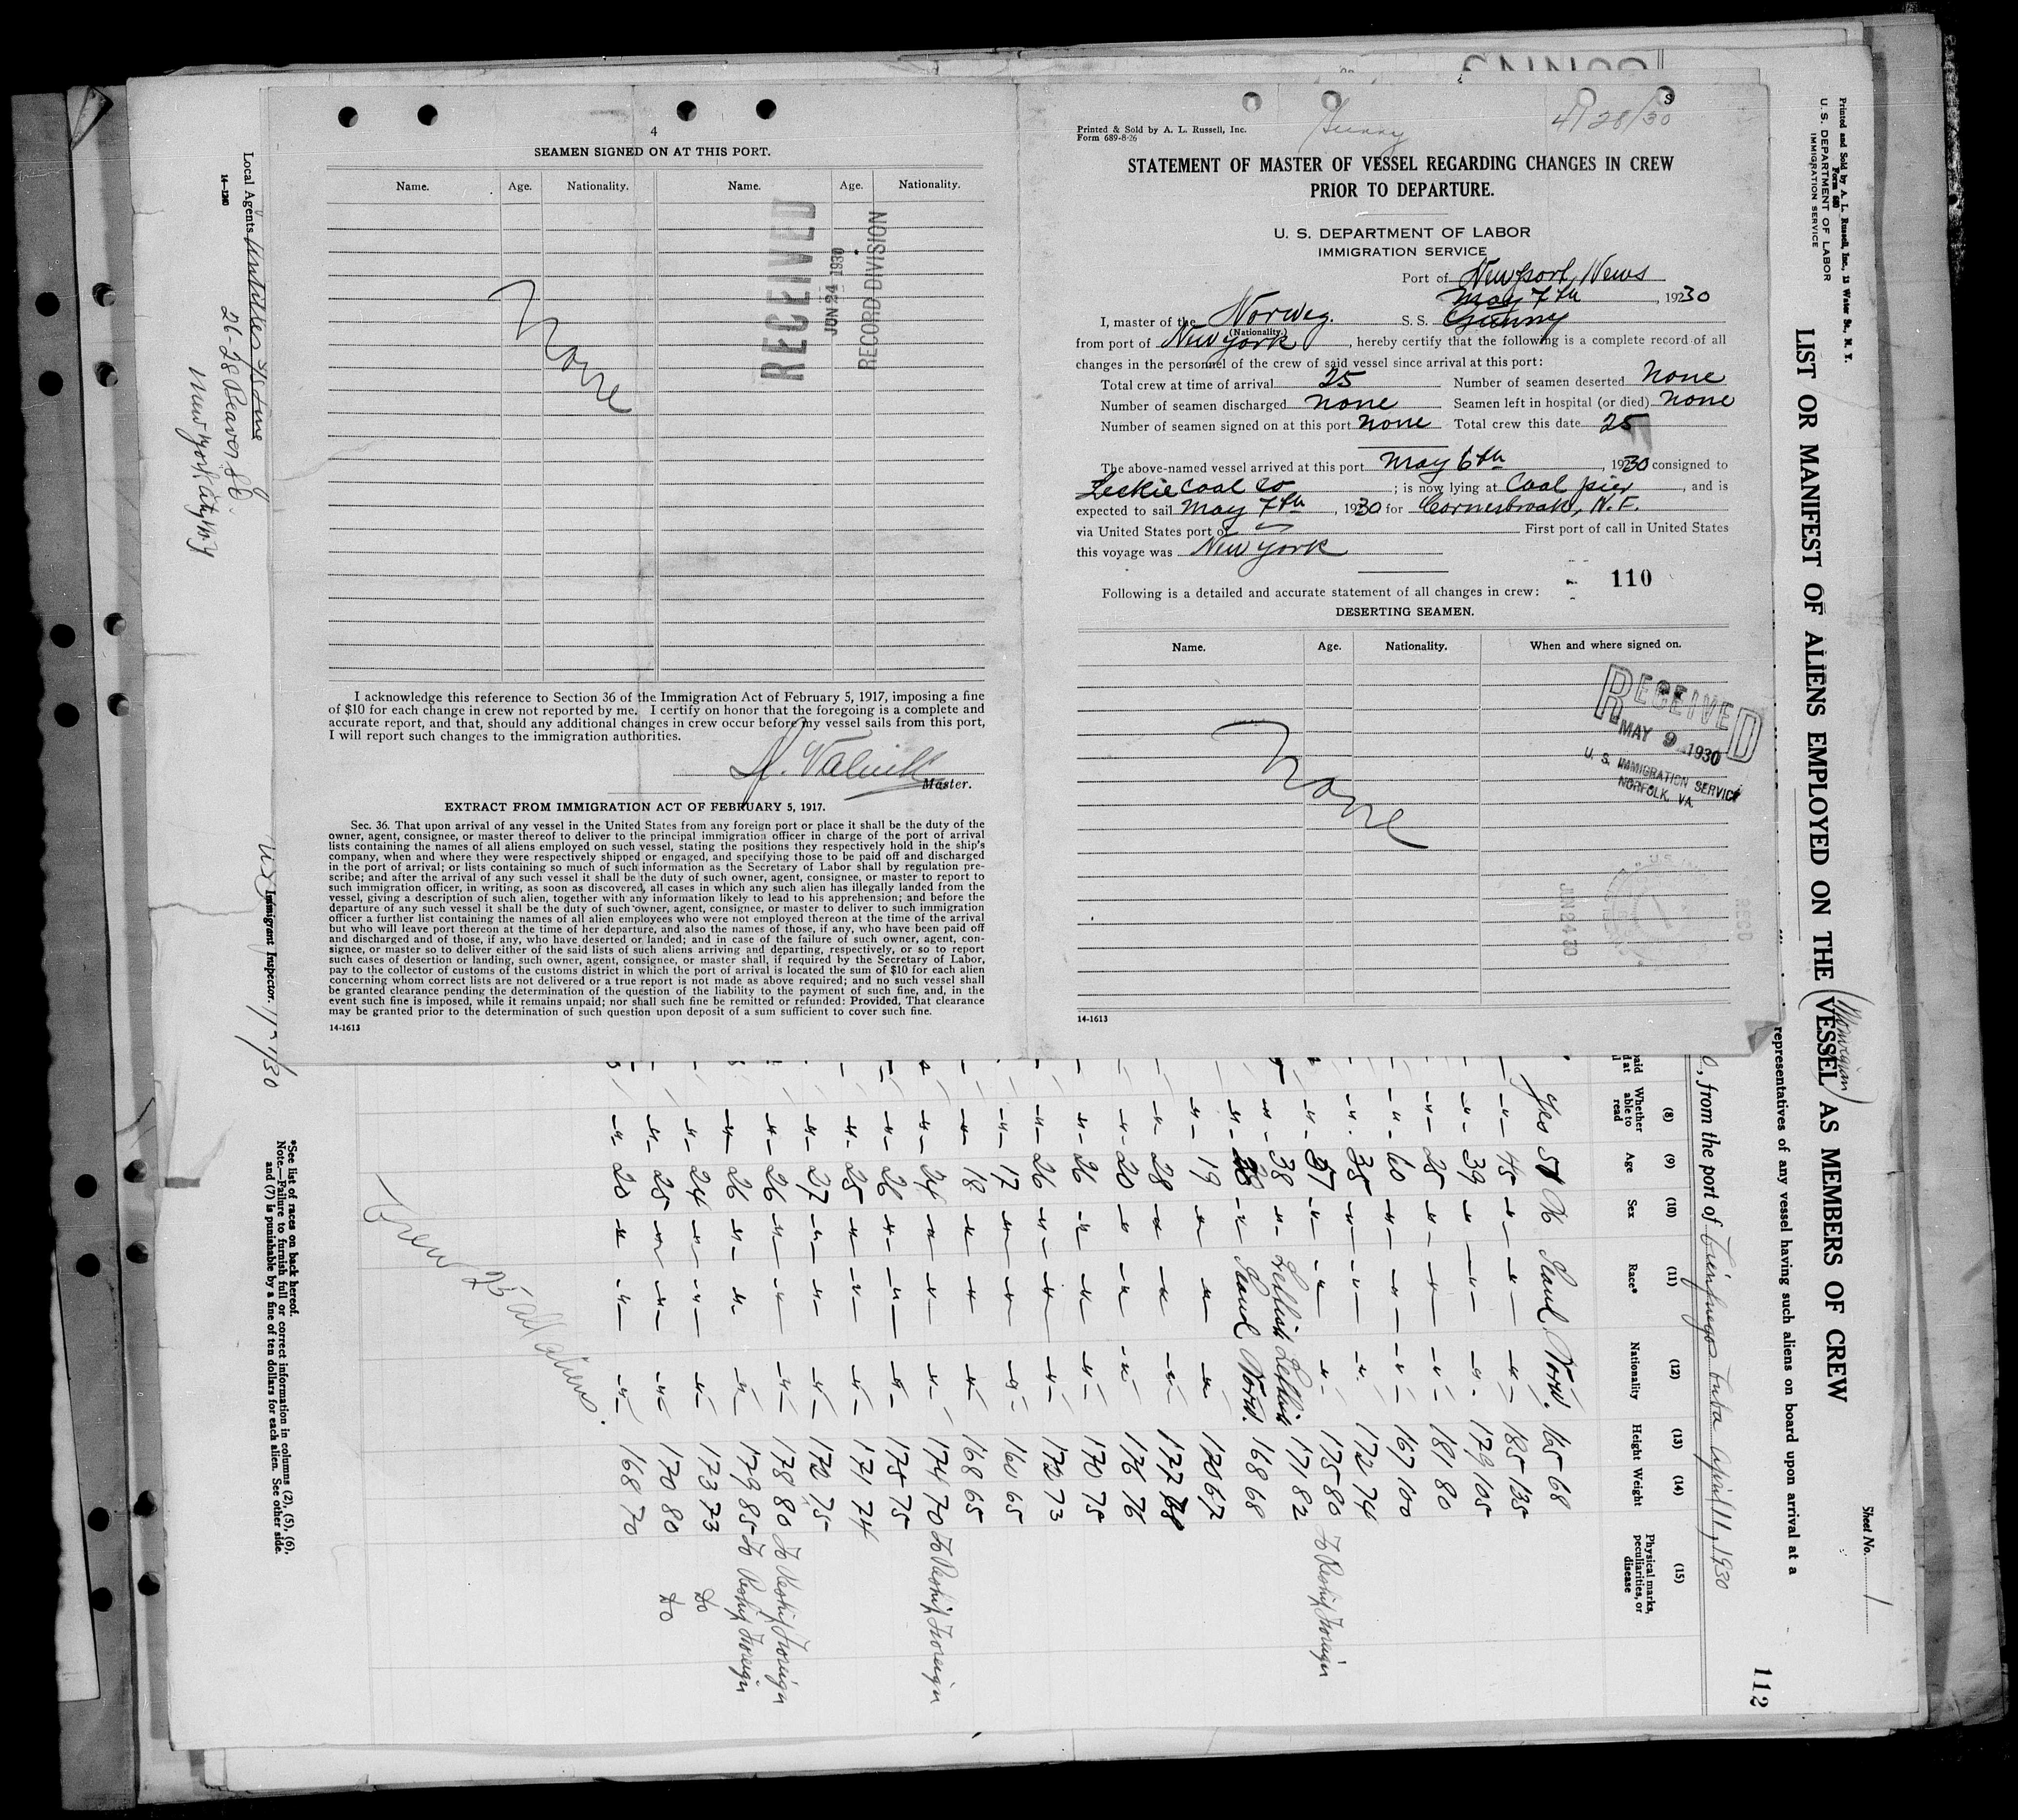 4
SEAMEN SIGNED ON AT THIS PORT.
Name. Age. Nationality. Name. Age. Nationality.
None
RECEIVED
JUN 24 1930
RECORD DIVISION
I acknowledge this reference to Section 36 of the Immigration Act of February 5, 1917, imposing a fine
of $10 for each change in crew not reported by me. I certify on honor that the foregoing is a complete and
accurate report, and that, should any additional changes in crew occur before my vessel sails from this port,
I will report such changes to the immigration authorities.
Master.
EXTRACT FROM IMMIGRATION ACT OF FEBRUARY 5, 1917.
Sec. 36. That upon arrival of any vessel in the United States from any foreign port or place it shall be the duty of the
owner, agent, consignee, or master thereof to deliver to the principal immigration officer in charge of the port of arrival
lists containing the names of all aliens employed on such vessel, stating the positions they respectively hold in the ship's
company, when and where they were respectively shipped or engaged, and specifying those to be paid off and discharged
in the port of arrival; or lists containing so much of such information as the Secretary of Labor shall by regulation pre-
scribe; and after the arrival of any such vessel it shall be the duty of such owner, agent, consignee, or master to report to
such immigration officer, in writing, as soon as discovered, all cases in which any such alien has illegally landed from the
vessel, giving a description of such alien, together with any information likely to lead to his apprehension; and before the
departure of any such vessel it shall be the duty of such owner, agent, consignee, or master to deliver to such immigration
officer a further list containing the names of all alien employees who were not employed thereon at the time of the arrival
but who will leave port thereon at the time of her departure, and also the names of those, if any, who have been paid off
and discharged and of those, if any, who have deserted or landed; and in case of the failure of such owner, agent, con-
signee, or master so to deliver either of the said lists of such aliens arriving and departing, respectively, or so to report
such cases of desertion or landing, such owner, agent, consignee, or master shall, if required by the Secretary of Labor,
pay to the collector of customs of the customs district in which the port of arrival is located the sum of $10 for each alien
concerning whom correct lists are not delivered or a true report is not made as above required; and no such vessel shall
be granted clearance pending the determination of the question of the liability to the payment of such fine, and, in the
event such fine is imposed, while it remains unpaid; nor shall such fine be remitted or refunded: Provided, That clearance
may be granted prior to the determination of such question upon deposit of a sum sufficient to cover such fine.
14-1613
Printed & Sold by A. L. Russell, Inc.
Form 689-8-26
Gunny 4/28/30
STATEMENT OF MASTER OF VESSEL REGARDING CHANGES IN CREW
PRIOR TO DEPARTURE.
U. S. DEPARTMENT OF LABOR
IMMIGRATION SERVICE
Port of Newport News
May 7th, 1930
I, master of the Norweg. S. S. Gunny
(Nationality.)
from port of New York, hereby certify that the following is a complete record of all
changes in the personnel of the crew of said vessel since arrival at this port:
Total crew at time of arrival 25 Number of seamen deserted None
Number of seamen discharged none Seamen left in hospital (or died) none
Number of seamen signed on at this port none Total crew this date 25
The above-named vessel arrived at this port May 6th, 1930 consigned to
Leckie Coal Co; is now lying at Coal pier, and is
expected to sail May 7th, 1930 for Cornerbrook, N.F.
via United States port of First port of call in United States
this voyage was New York
110
Following is a detailed and accurate statement of all changes in crew:
DESERTING SEAMEN.
Name. Age. Nationality. When and where signed on.
None
RECEIVED
MAY 9 1930
U. S. IMMIGRATION SERVICE
NORFOLK, VA.
JUN 24 30
REC'D
14-1613
Printed and Sold by A. L. Russell, Inc., 13 Water St., N. Y.
Form 680
U. S. DEPARTMENT OF LABOR
IMMIGRATION SERVICE
LIST OR MANIFEST OF ALIENS EMPLOYED ON THE (Norwegian) VESSEL AS MEMBERS OF CREW
Sheet No. 1
representatives of any vessel having such aliens on board upon arrival at a
, from the port of Cienfuegos Cuba April 11, 1930
112
(8) (9) (10) (11) (12) (13) (14) (15)
Whether able to read Age Sex Race* Nationality Height Weight Physical marks, peculiarities, or disease
Yes 51 M Scand. Norw. 165 68
-"- 45 -"- -"- -"- 185 135
-"- 39 -"- -"- -"- 179 105
-"- 25 -"- -"- -"- 181 80
-"- 60 -"- -"- -"- 167 100
-"- 35 -"- -"- -"- 172 74
-"- 37 -"- -"- -"- 175 80 To Reship Foreign
-"- 38 -"- 171 82
-"- -"- Scand Norw. 168 68
-"- 19 -"- -"- -"- 170 67
-"- 28 -"- -"- -"- 177 78
-"- 20 -"- -"- -"- 176 76
-"- 26 -"- -"- -"- 170 75
-"- 26 -"- -"- -"- 172 73
-"- 17 -"- -"- -"- 160 65
-"- 18 -"- -"- -"- 168 65
-"- 24 -"- -"- -"- 174 70 To Reship Foreign
-"- 26 -"- -"- -"- 175 75
-"- 25 -"- -"- -"- 171 74
-"- 27 -"- -"- -"- 172 75
-"- 26 -"- -"- -"- 178 80 To Reship Foreign
-"- 26 -"- -"- -"- 179 85 To Reship Foreign
-"- 24 -"- -"- -"- 173 73 do
-"- 25 -"- -"- -"- 170 80 do
-"- 20 -"- -"- -"- 168 70
Crew 25 all aliens.
*See list of races on back hereof.
Note.—Failure to furnish full or correct information in columns (2), (5), (6),
and (7) is punishable by a fine of ten dollars for each alien. See other side.
Local Agents
26-28 Beaver St.
New York City N.Y
14-1240
Immigrant Inspector.